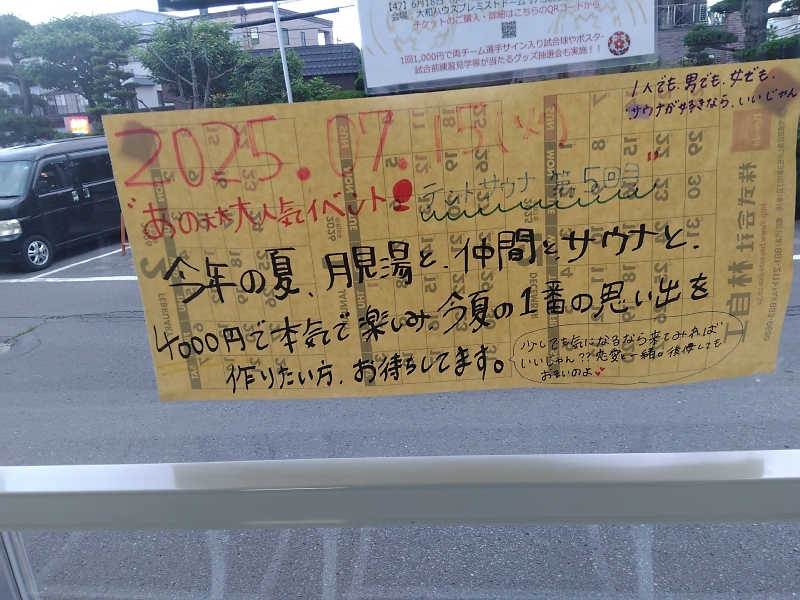 【47】6月18
会場: 大和ハウスプレミストドーム
チケットのご購入・詳細はこちらのQRコードから
1回1,000円で両チーム選手サイン入り試合球やポスター
試合前練習見学等が当たるグッズ抽選会も実施!!
1人でも、男でも、女でも、
サウナが好きなら、いいじゃん
2025.07.
"あの大大大人気イベント!
テントサウナ 第5回目"
今年の夏、月見湯と、仲間とサウナと、
4000円で本気で楽しみ、今夏の1番の思い出を
作りたい方、お待ちしてます。
少しでも気になるなら来てみれば
いいじゃん??恋愛と一緒。後悔しても
おそいのよ